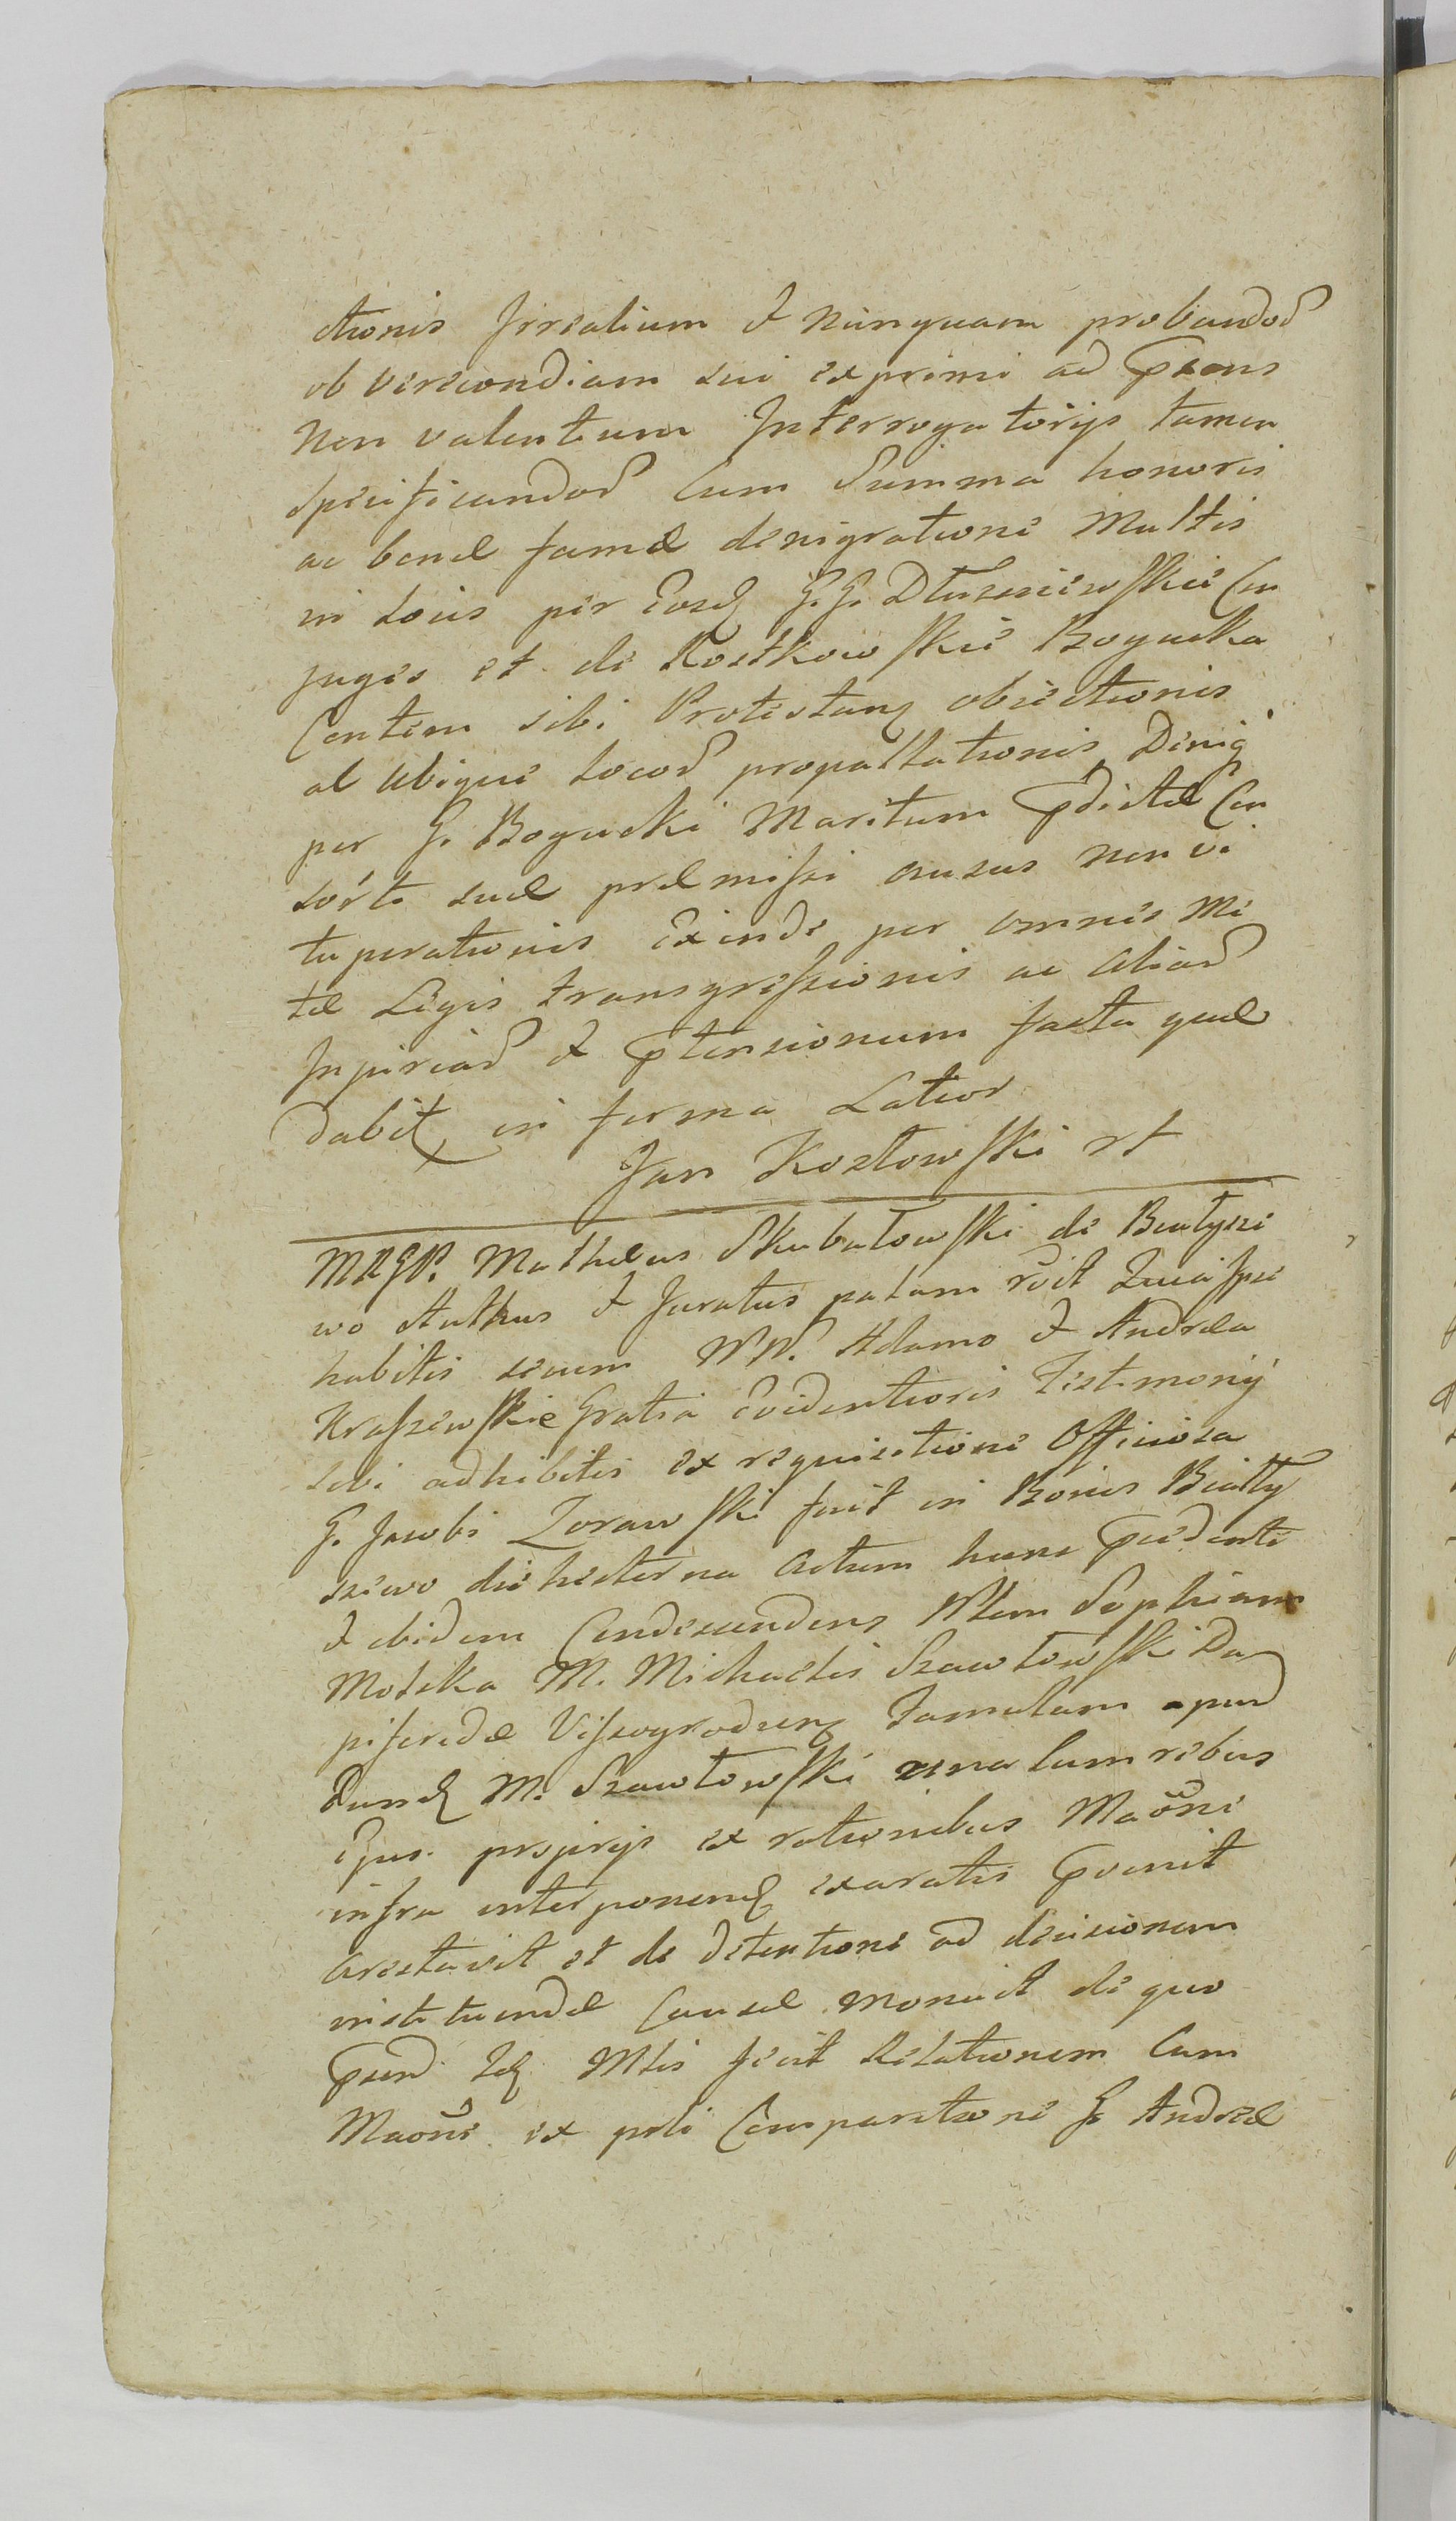 ctionis Irrealium & Nunquam probandor
ob verecundiam sui exprimi ad Psens
Non valentium Interrogatorijs tamen
specificandor Cum Summa honoris
ac bonæ famæ denigratione Multis
in Locis per Eosd G.G. Dłuzniewskie Con
juges et de Kostkowskie Bogucka
Contem sibi Protestanq obiectionis
al ubique Locor propallationis Deniq
per G. Bogucki Maritum Pdictæ Con
sorti suæ præmissi ausus non vi
tuperationis Exinde per omnes Mi
tæ Legis transgressionis ac aliar
Injuriar & Ptensionum facta quæ
dabit in forma Latior
Jan Kozłowski rt
MRGP. Mathæus Skubatowski de Beałysze
wo Authus & Juratus palam rcit Quia Ipse
habitis secum NN. Adamo & Andrea
Kraszewskie Gratia Evidentioris Testimonÿ
sibi adhibitis ex requisitione Officiosa
G. Jacobi Zorawski fuit in Bonis Białły
szewo die hesterna Actum hunc Pcedenti
& ibidem Condescendens Nlem Sophiam
Motska M. Michaelis Szawłowski Da
piferidæ Vissogroduenq Famulam apud
Eund M. Szawłowski una Cum rebus
Ejus proprijs ex rationibus Maõne
infra interponend exaratis Pvenit
arestavit et de detentione ad decisionem
instituendæ Causæ monuit de quo
Psend Id Mlis fecit Relationem Cum
Maõne ex prli Comparitione G Andreæ